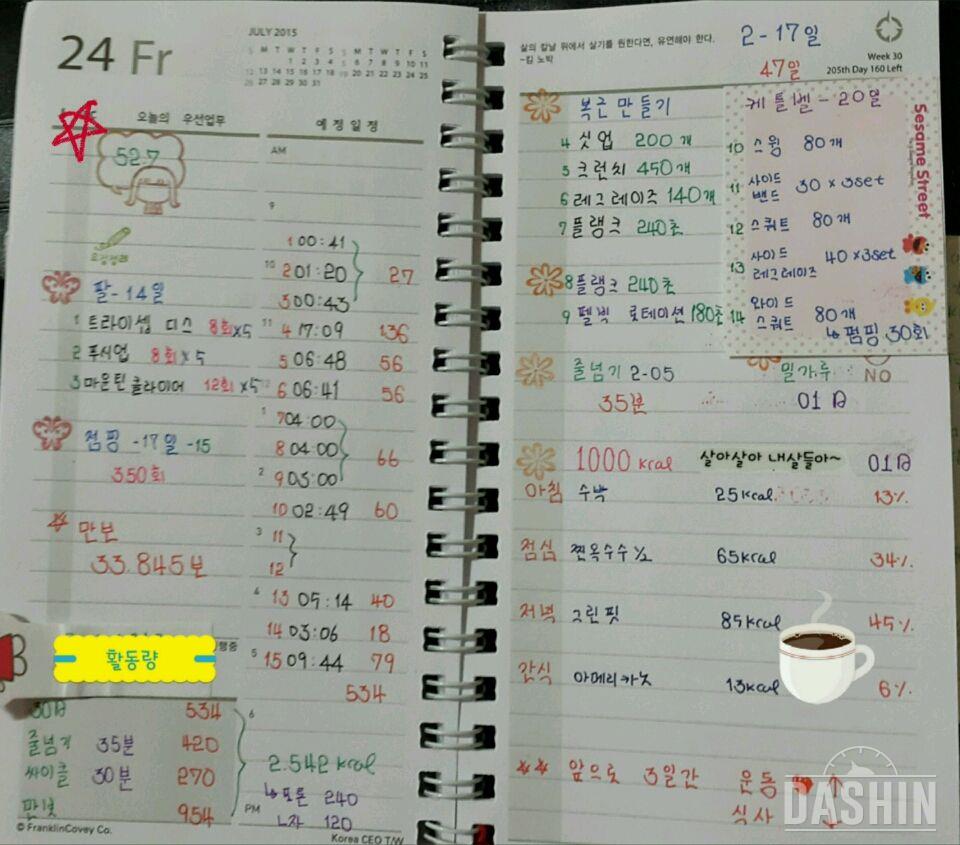 24 Fr
JULY 2015
S M T W T F S S M T W T F S
1 2 3 4 5 6 7 8 9 10 11
12 13 14 15 16 17 18 19 20 21 22 23 24 25
26 27 28 29 30 31
오늘의 우선업무
52.7
요점정리
팔-14일
1 트라이셉 딥스 8회x5
2 푸시업 8회x5
3 마운틴클라이머 12회x5
점핑 -17일 -15
350회
만보
33.845보
활동량
30일 534
줄넘기 35분 420
싸이클 30분 270
만보 954
© FranklinCovey Co.
예정일정
AM
9
1 00:41
10 2 01:20 27
3 00:43
11 4 17:09 136
5 06:48 56
12 6 06:41 56
1 7 04:00
8 04:00 66
2 9 03:00
10 02:49 60
3 11
12
4 13 05:14 40
14 03:06 18
5 15 09:44 79
534
6
2.542 kcal
↳ 토론 240
PM
L자 120
Korea CEO T/W
삶의 칼날 위에서 살기를 원한다면, 유연해야 한다.
~김 노박
2-17일
47일
Week 30
205th Day 160 Left
복근 만들기
4 싯업 200개
5 크런치 450개
6 레그레이즈 140개
7 플랭크 240초
8 플랭크 240초
9 펠빅 로테이션 180초
케틀벨-20일
10 스윙 80개
11 사이드 밴드 30 x 3set
12 스쿼트 80개
13 사이드 레그레이즈 40x3set
14 와이드 스쿼트 80개
↳ 펌핑 30회
Sesame Street
줄넘기 2-05
35분
밀가루 NO
01일
1000 kcal 살아살아 내살들아~ 01일
아침 수박 25kcal 13%
점심 찐옥수수 1/2 65kcal 34%
저녁 그린핏 85kcal 45%
간식 아메리카노 13kcal 6%
앞으로 3일간 운동 ↑
식사 ↓
DASHIN